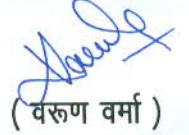 ( वरूण वर्मा )